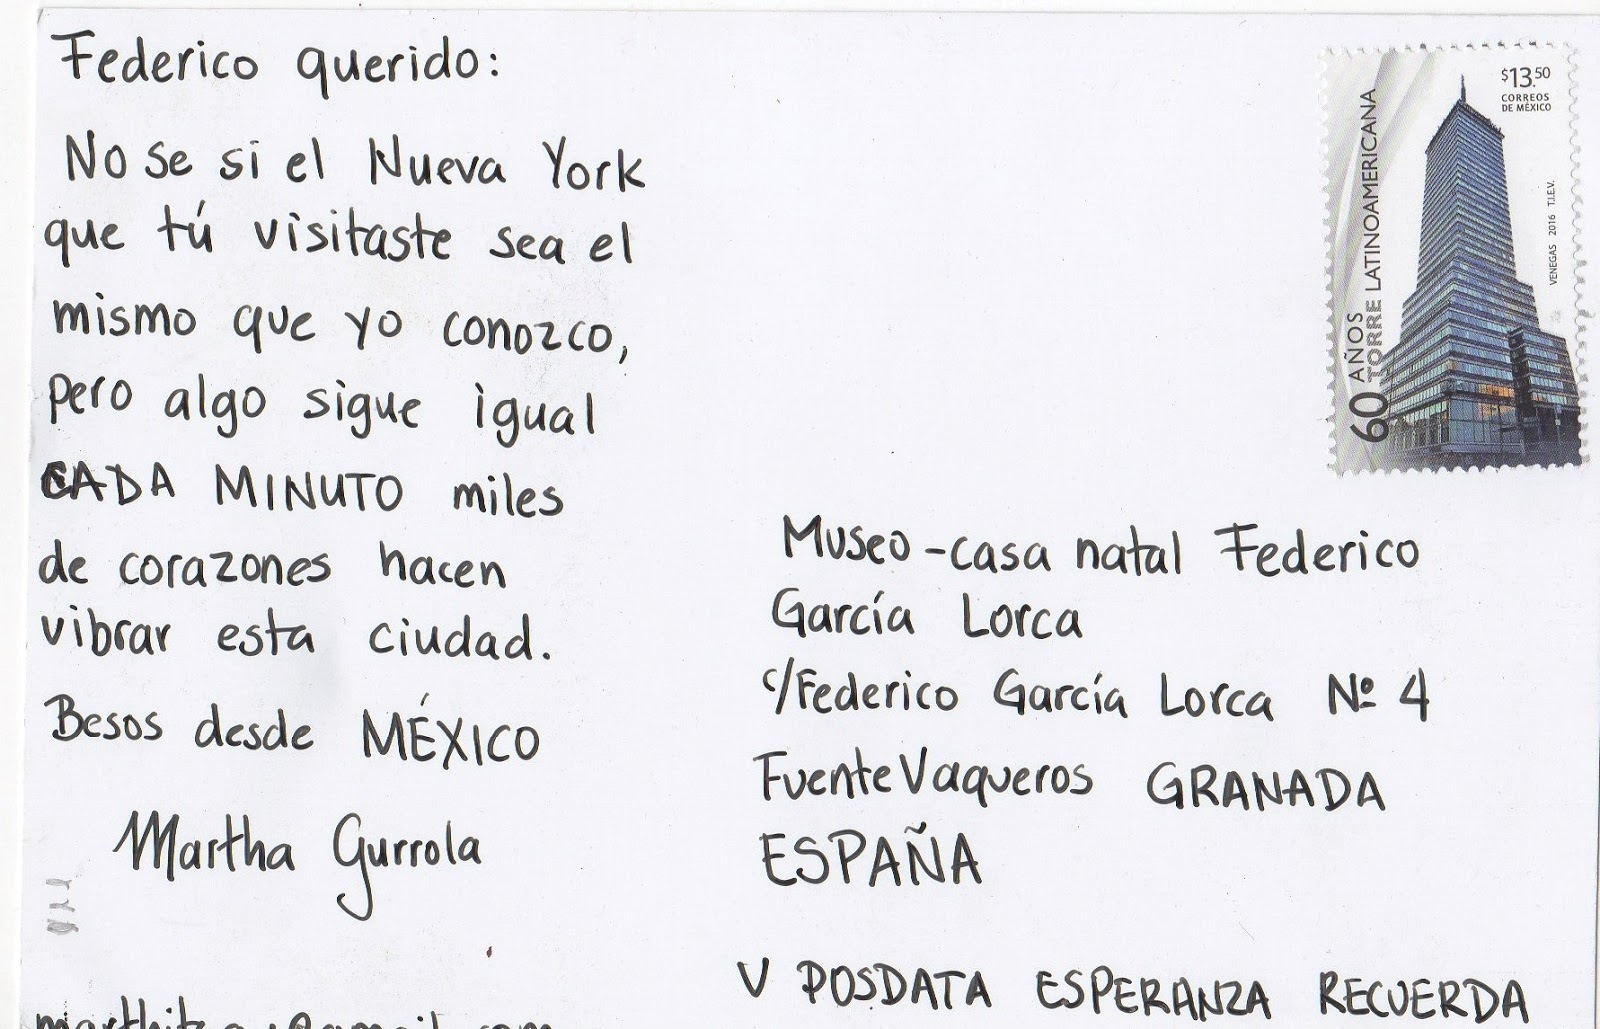 Federico querido:
No se si el Nueva York
que tú visitaste sea el
mismo que yo conozco,
pero algo sigue igual
CADA MINUTO miles
de corazones hacen
vibrar esta ciudad.
Besos desde MÉXICO
Martha Gurrola
$13.50
CORREOS
DE MÉXICO
60 AÑOS
TORRE LATINOAMERICANA
VENEGAS 2016 T.I.E.V.
Museo-casa natal Federico
García Lorca
c/Federico García Lorca Nº 4
Fuente Vaqueros GRANADA
ESPAÑA
V POSDATA ESPERANZA RECUERDA